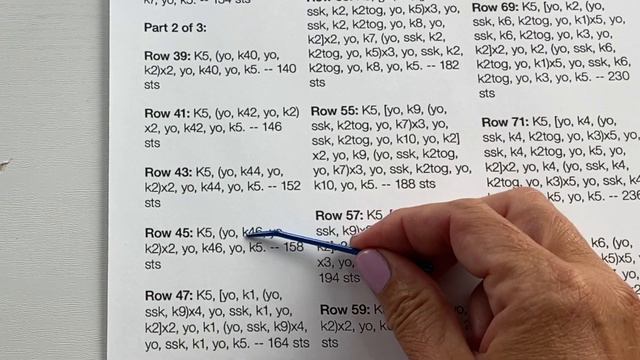 k7, yo, k5. -- 134 sts
Part 2 of 3:
Row 39: K5, (yo, k40, yo,
k2)x2, yo, k40, yo, k5. -- 140
sts
Row 41: K5, (yo, k42, yo, k2)
x2, yo, k42, yo, k5. -- 146
sts
Row 43: K5, (yo, k44, yo,
k2)x2, yo, k44, yo, k5. -- 152
sts
Row 45: K5, (yo, k46, yo,
k2)x2, yo, k46, yo, k5. -- 158
sts
Row 47: K5, [yo, k1, (yo,
ssk, k9)x4, yo, ssk, k1, yo,
k2]x2, yo, k1, (yo, ssk, k9)x4,
yo, ssk, k1, yo, k5. -- 164 sts
ssk, k2, k2tog, yo, k5)x3, yo,
ssk, k2, k2tog, yo, k8, yo,
k2]x2, yo, k7, (yo, ssk, k2,
k2tog, yo, k5)x3, yo, ssk, k2,
k2tog, yo, k8, yo, k5. -- 182
sts
Row 55: K5, [yo, k9, (yo,
ssk, k2tog, yo, k7)x3, yo,
ssk, k2tog, yo, k10, yo, k2]
x2, yo, k9, (yo, ssk, k2tog,
yo, k7)x3, yo, ssk, k2tog, yo,
k10, yo, k5. -- 188 sts
Row 57: K5,
ssk, k9)x
k2]
x3, yo,
194 sts
Row 59:
k2)x2, yo,
sts
Row 69: K5, [yo, k2, (yo,
ssk, k6, k2tog, yo, k1)x5, yo,
ssk, k6, k2tog, yo, k3, yo,
k2]x2, yo, k2, (yo, ssk, k6,
k2tog, yo, k1)x5, yo, ssk, k6,
k2tog, yo, k3, yo, k5. -- 230
sts
Row 71: K5, [yo, k4, (yo,
ssk, k4, k2tog, yo, k3)x5, yo,
ssk, k4, k2tog, yo, k5, yo,
k2]x2, yo, k4, (yo, ssk, k4,
k2tog, yo, k3)x5, yo, ssk, k4,
k2tog, yo, k5, yo, k5. -- 236
k6, (yo,